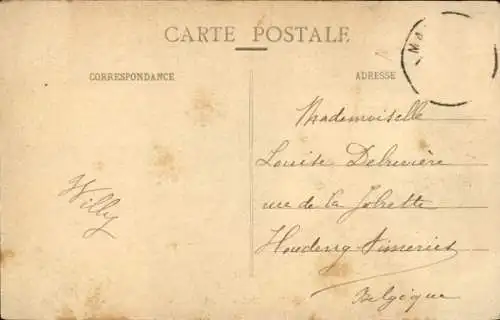 CARTE POSTALE
CORRESPONDANCE
ADRESSE
Mademoiselle
Louise Delrivière
rue de la
Houdeng-Aimeries
Belgique
Willy